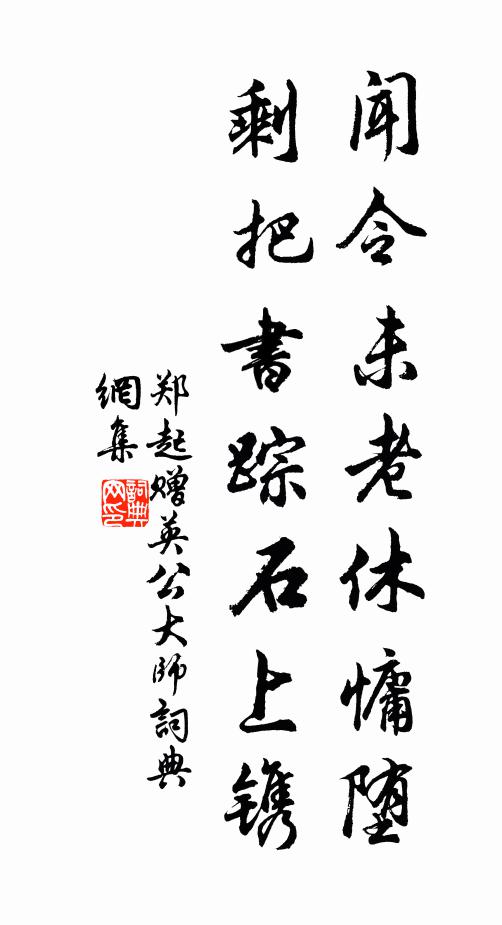 闻令未老休慵堕
剩把書踪石上镌
郑起赠英公大师詞典
網集
詞典网印